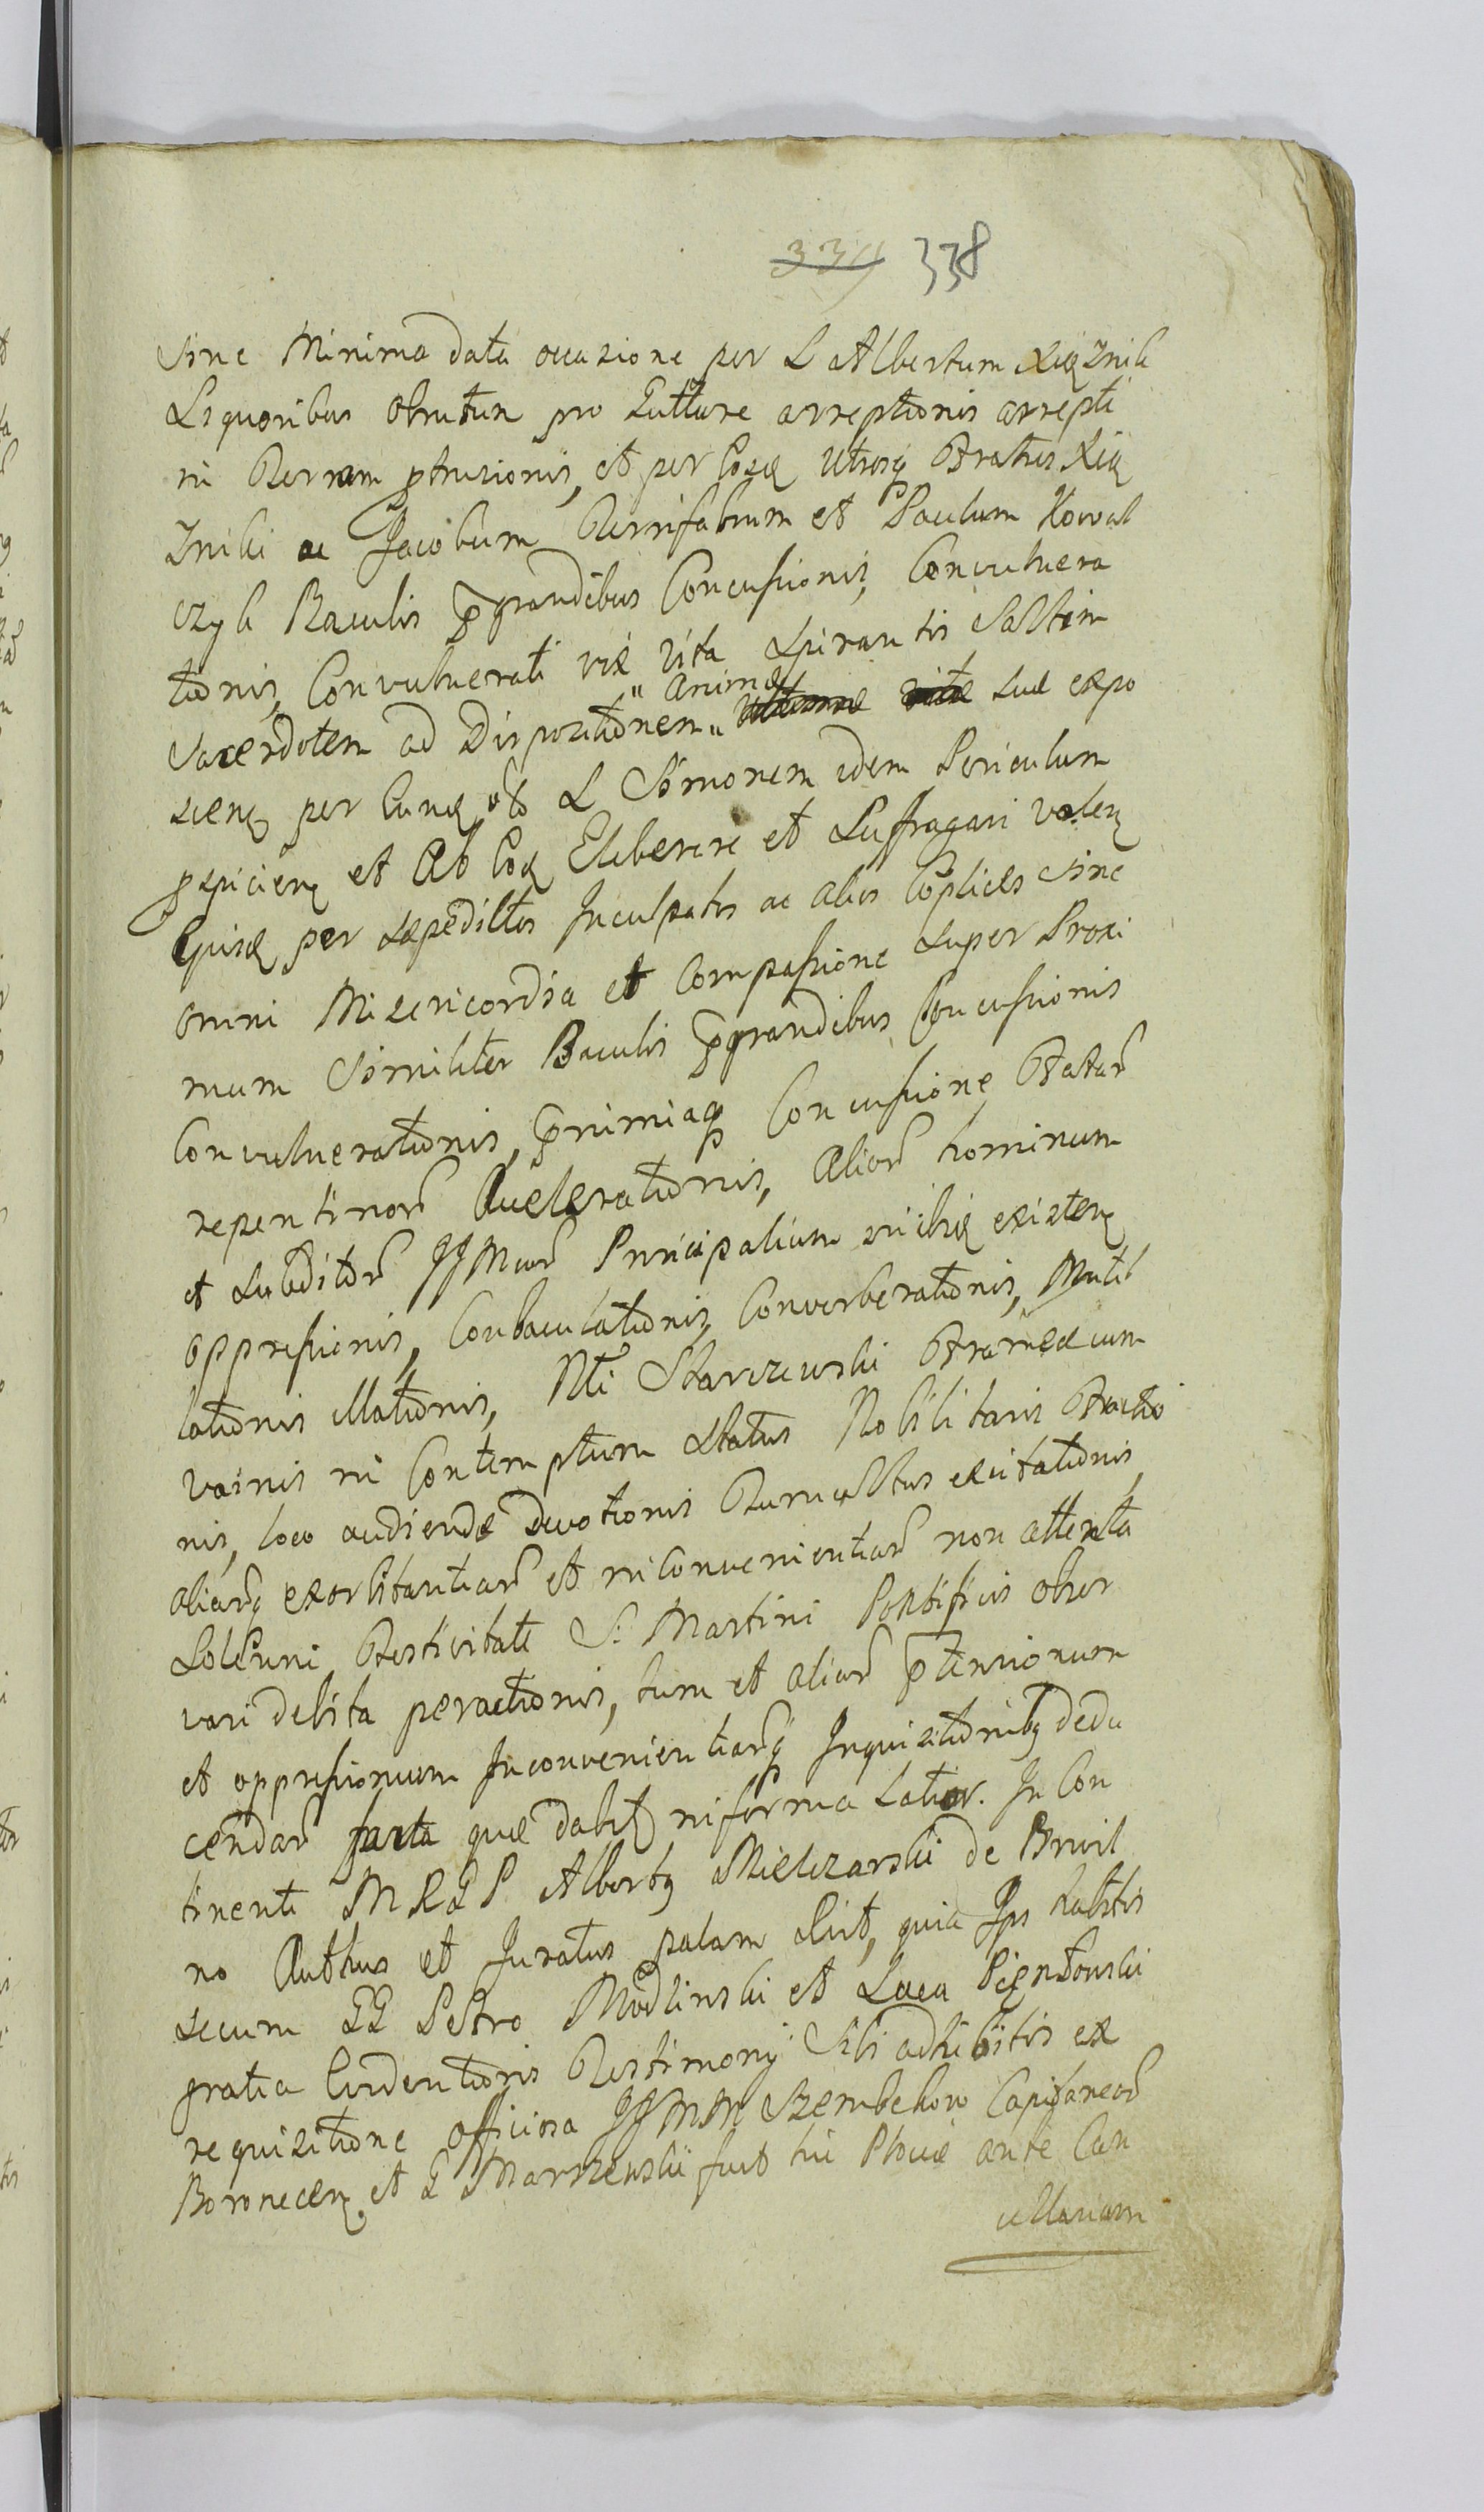 334 338
sine Minima data occasione per L Albertum Xięznik
Liquoribus obrutum pro Gutture arreptionis arrepti
in Terram ptrusionis, et per Eosd Utrosq Fratres Xię
zniki ac Jacobum Ferrifabrum et Paulum Kowal
czyk Baculis pgrandibus Concussionis, Convulnera
tionis, Convulnerati vix vita spirantis Saltim
Sacerdotem ad Dispositionem " Animæ " suæ expo
scen per Eund et L Simonem idem Periculum
pspicien et Ab Eod Eliberere et Suffragari volen
Ejusd per sæpedictos Inculpatos ac alios Coplices sine
omni Misericordia et Compassione super Proxi
mum Similiter Baculis pgrandibus Concussionis
Convulnerationis, pnimiaq Concussione Fatar
repentinor Accelerationis, Alior hominum
et Subditor JJMcor Principalium inibiq existen
oppressionis, Conbaculationis, Converberationis, Mutil
lationis illationis, Nti Skarzewski Frameæ cum
vainis in Contemptum Status Nobilitaris Fractio
nis, loco audiendæ Devotionis Tumultus excitationis,
aliarq exorbitantiar et inconvenientiar non attenta
Solenni Festivitate S. Martini Pontificis obser
vari debita peractionis, tum et aliar ptensionum
et oppressionum Inconvenientiarq Inquisitionibq dedu
cendar facta quæ dabit informa Latior. In Con
tinenti M R G P Albertq Mielczarski de Brwil
no Authus et Juratus palam dixit, quia Ips habitis
secum GG Petro Modlinski et Luca Pięntowski
gratia Evidentioris Testimonij Sibi adhibitis ex
requisitione officiosa JJMM Szembekow Capitaneor
Boronecen et G Marszewskii fuit hic Plociæ ante Can
cellariam